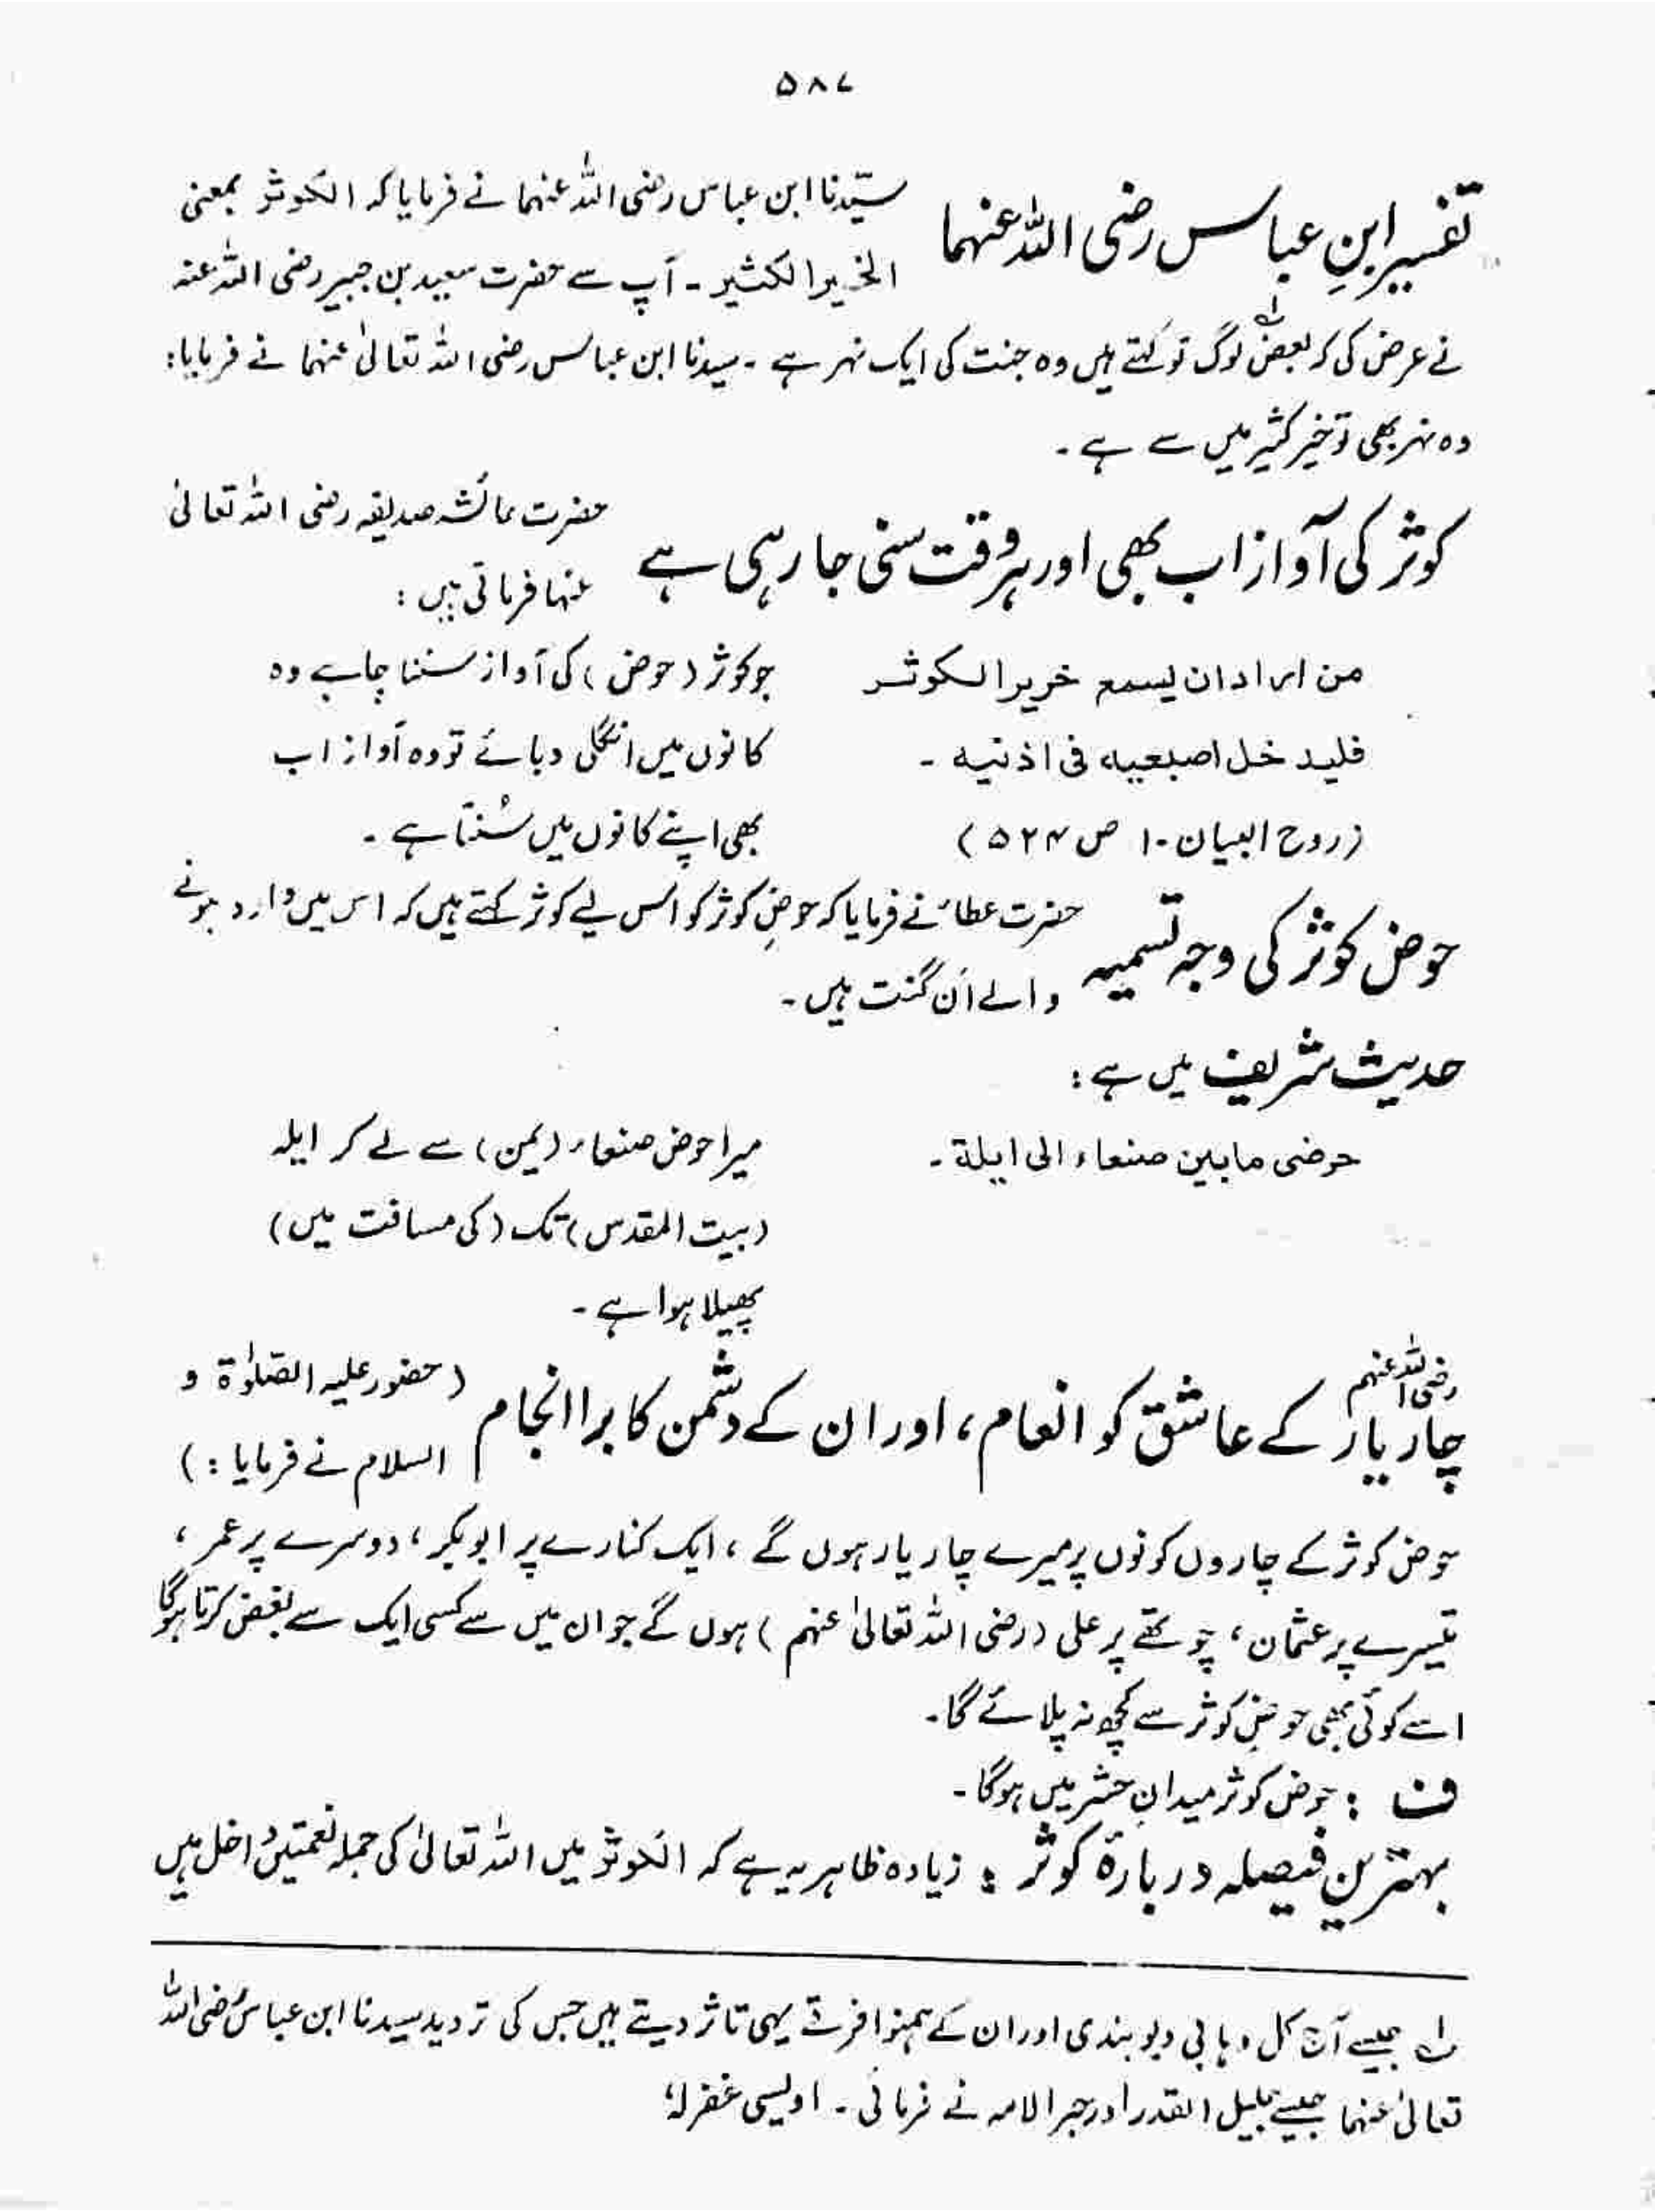 ۵۸۷
تفسیر ابنِ عباس رضی اللہ عنہما سیّدنا ابن عباس رضی اللہ عنہما نے فرمایا کہ الکوثر بمعنی
الخیر الکثیر ۔ آپ سے حضرت سعید بن جبیر رضی اللہ عنہ
نے عرض کی کہ بعض لوگ تو کہتے ہیں وہ جنت کی ایک نہر ہے ۔ سیدنا ابن عباس رضی اللہ تعالیٰ عنہما نے فرمایا :
وہ نہر بھی تو خیر کثیر میں سے ہے ۔
کوثر کی آواز اب بھی اور ہر وقت سنی جا رہی ہے حضرت عائشہ صدیقہ رضی اللہ تعالیٰ
عنہا فرماتی ہیں :
من اراد ان یسمع خریر الکوثر جو کوثر ( حوض ) کی آواز سننا چاہے وہ
فلیدخل اصبعیہ فی اذنیہ ۔ کانوں میں انگلی دبائے تو وہ آواز اب
( روح البیان ۱۰ ص ۵۲۴ ) بھی اپنے کانوں میں سُنتا ہے ۔
حوض کوثر کی وجہ تسمیہ حضرت عطاء نے فرمایا کہ حوضِ کوثر کو اس لیے کوثر کہتے ہیں کہ اس میں وارد ہونے
والے اَن گنت ہیں ۔
حدیث شریف میں ہے :
حوضی مابین صنعاء الی ایلة ۔ میرا حوض صنعاء ( یمن ) سے لے کر ایلہ
( بیت المقدس ) تک ( کی مسافت میں )
پھیلا ہوا ہے ۔
چار یار رضی اللہ عنہم کے عاشق کو انعام ، اور ان کے دشمن کا برا انجام ( حضور علیہ الصّلوٰۃ و
السلام نے فرمایا : )
حوض کوثر کے چاروں کونوں پر میرے چار یار ہوں گے ، ایک کنارے پر ابوبکر ، دوسرے پر عمر ،
تیسرے پر عثمان ، چوتھے پر علی ( رضی اللہ تعالیٰ عنہم ) ہوں گے جو ان میں سے کسی ایک سے بغض کرتا ہوگا
اسے کوئی بھی حوضِ کوثر سے کچھ نہ پلائے گا ۔
ف : حوض کوثر میدانِ حشر میں ہوگا ۔
بہترین فیصلہ دربارۂ کوثر : زیادہ ظاہر یہ ہے کہ الکوثر میں اللہ تعالیٰ کی جملہ نعمتیں داخل ہیں
لہ جیسے آج کل وہابی دیوبندی اور ان کے ہمنوا فرقے یہی تاثر دیتے ہیں جس کی تردید سیدنا ابن عباس رضی اللہ
تعالیٰ عنہما جیسے جلیل القدر اور حبر الامہ نے فرمائی ۔ اویسی غفرلہٗ